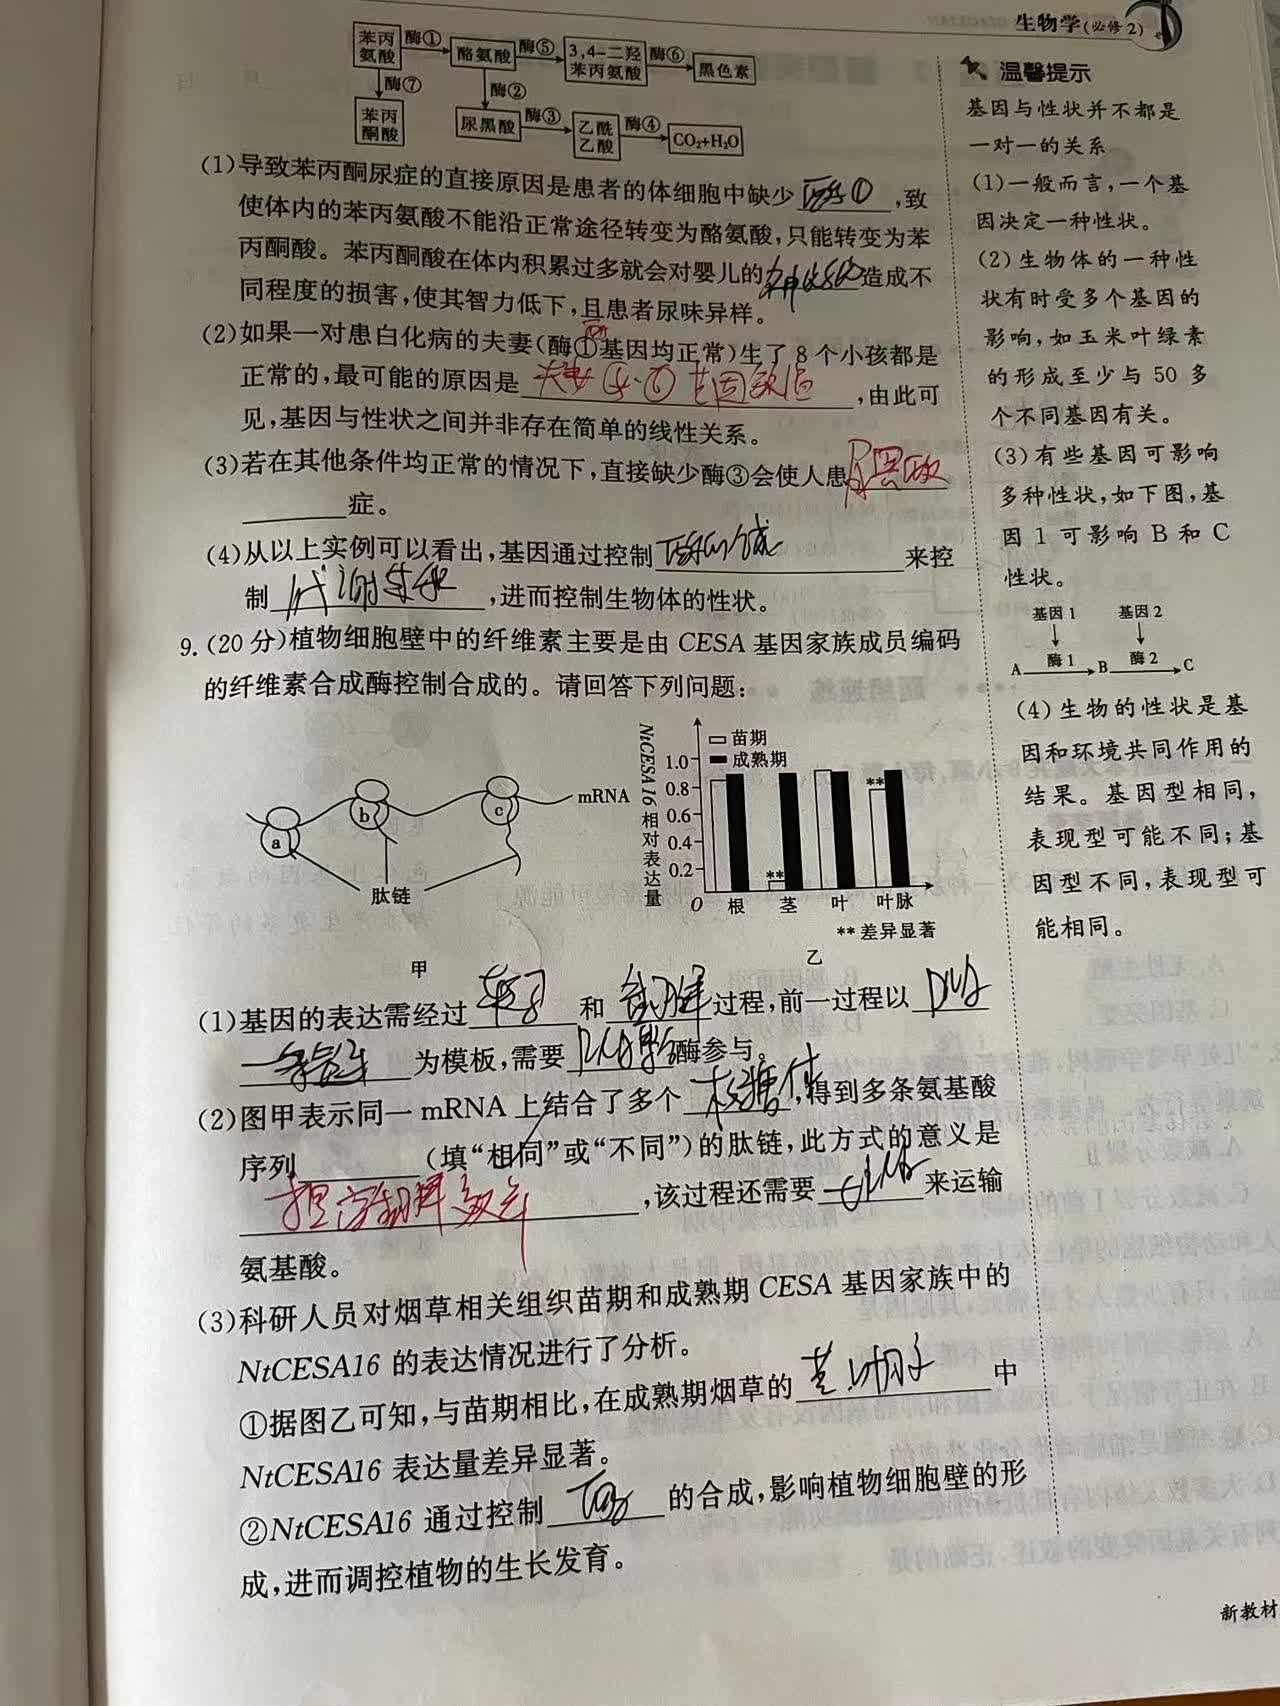 生物学(必修2)
苯丙氨酸 酶① 酪氨酸 酶⑤ 3,4-二羟苯丙氨酸 酶⑥ 黑色素
酶⑦ 酶②
苯丙酮酸 尿黑酸 酶③ 乙酰乙酸 酶④ CO₂+H₂O
(1)导致苯丙酮尿症的直接原因是患者的体细胞中缺少 酶① ,致
使体内的苯丙氨酸不能沿正常途径转变为酪氨酸,只能转变为苯
丙酮酸。苯丙酮酸在体内积累过多就会对婴儿的 造成不
同程度的损害,使其智力低下,且患者尿味异样。
(2)如果一对患白化病的夫妻(酶①基因均正常)生了8个小孩都是
正常的,最可能的原因是 ,由此可
见,基因与性状之间并非存在简单的线性关系。
(3)若在其他条件均正常的情况下,直接缺少酶③会使人患 尿黑酸
症。
(4)从以上实例可以看出,基因通过控制 酶的合成 来控
制 代谢过程 ,进而控制生物体的性状。
9.(20分)植物细胞壁中的纤维素主要是由CESA基因家族成员编码
的纤维素合成酶控制合成的。请回答下列问题:
a b c mRNA
肽链
甲
NtCESA16相对表达量
苗期
成熟期
1.0
0.8
0.6
0.4
0.2
O
** **
根 茎 叶 叶脉
**差异显著
乙
(1)基因的表达需经过 转录 和 翻译 过程,前一过程以 DNA
一条链 为模板,需要 RNA聚合 酶参与。
(2)图甲表示同一mRNA上结合了多个 核糖体 ,得到多条氨基酸
序列 (填“相同”或“不同”)的肽链,此方式的意义是
提高翻译效率 ,该过程还需要 tRNA 来运输
氨基酸。
(3)科研人员对烟草相关组织苗期和成熟期CESA基因家族中的
NtCESA16的表达情况进行了分析。
①据图乙可知,与苗期相比,在成熟期烟草的 茎、叶脉 中
NtCESA16表达量差异显著。
②NtCESA16通过控制 酶 的合成,影响植物细胞壁的形
成,进而调控植物的生长发育。
温馨提示
基因与性状并不都是
一对一的关系
(1)一般而言,一个基
因决定一种性状。
(2)生物体的一种性
状有时受多个基因的
影响,如玉米叶绿素
的形成至少与50多
个不同基因有关。
(3)有些基因可影响
多种性状,如下图,基
因1可影响B和C
性状。
基因1 基因2
A 酶1 B 酶2 C
(4)生物的性状是基
因和环境共同作用的
结果。基因型相同,
表现型可能不同;基
因型不同,表现型可
能相同。
新教材